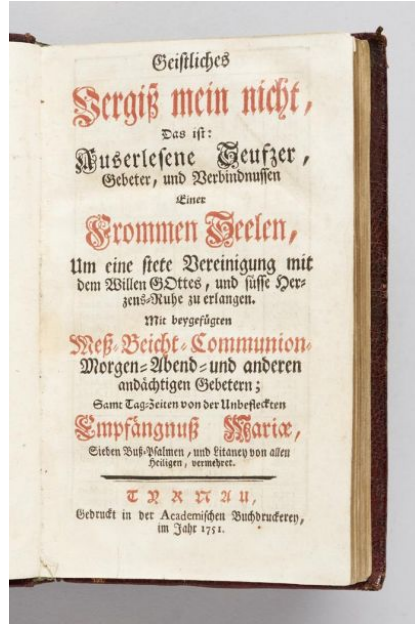 Geistliches
Vergiß mein nicht,
Das ist:
Auserlesene Seufzer,
Gebeter, und Verbindnussen
Einer
Frommen Seelen,
Um eine stete Vereinigung mit
dem Willen GOttes, und süsse Her-
zens-Ruhe zu erlangen.
Mit beygefügten
Meß-Beicht-Communion-
Morgen-Abend-und anderen
andächtigen Gebetern;
Samt Tag-Zeiten von der Unbefleckten
Empfängnuß Mariæ,
Sieben Buß-Psalmen, und Litaney von allen
Heiligen, vermehret.
TYRNAU,
Gedruckt in der Academischen Buchdruckerey,
im Jahr 1751.